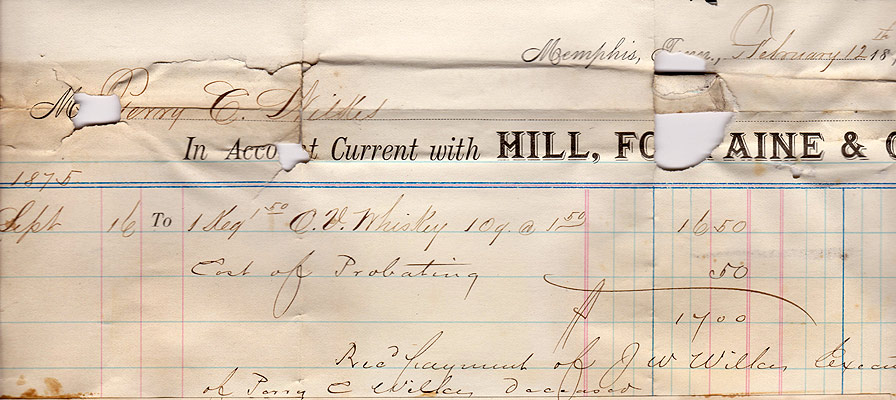 Memphis, Tenn., February 12th 18
M Perry C. Wilkes
In Acco t Current with HILL, FO TAINE & C
1875
Sept 16 To 1 Keg 1 50 O.V. Whiskey 10 g. @ 1 50 16 50
Cost of Probating 50
$ 17 00
Recd payment of J W Wilkes Execu
of Perry C Wilkes Deceased